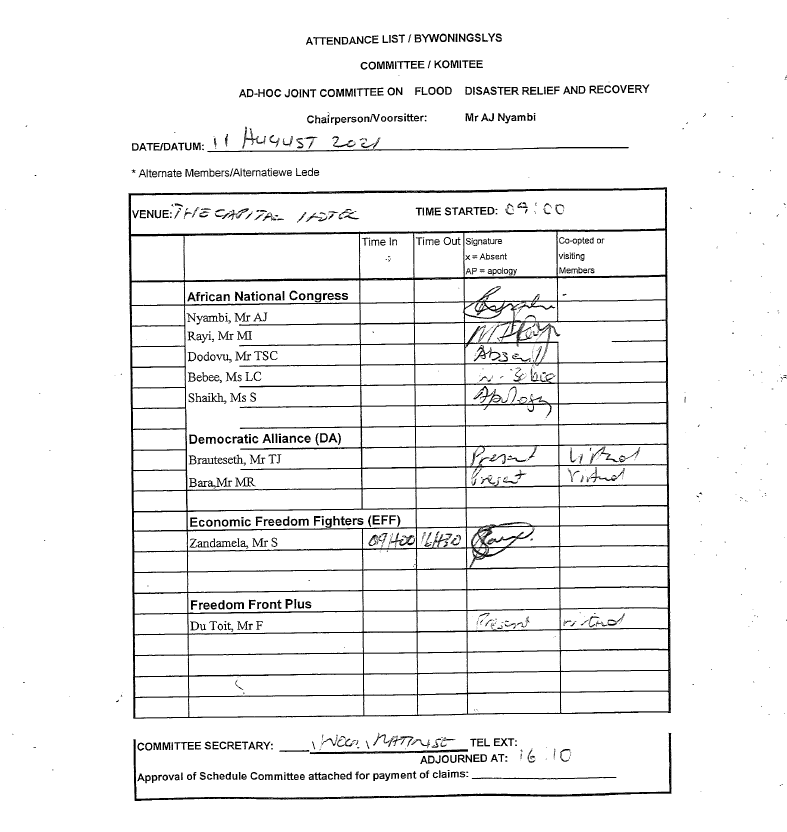 ATTENDANCE LIST / BYWONINGSLYS
COMMITTEE / KOMITEE
AD-HOC JOINT COMMITTEE ON FLOOD DISASTER RELIEF AND RECOVERY
Chairperson/Voorsitter: Mr AJ Nyambi
DATE/DATUM: 11 AUGUST 2021
* Alternate Members/Alternatiewe Lede
VENUE: THE CAPITAL HOTEL TIME STARTED: 09:00
Time In Time Out Signature Co-opted or
x = Absent visiting
AP = apology Members
African National Congress
Nyambi, Mr AJ
Rayi, Mr MI
Dodovu, Mr TSC Absent
Bebee, Ms LC
Shaikh, Ms S Apology
Democratic Alliance (DA)
Brauteseth, Mr TJ Present Virtual
Bara,Mr MR Present Virtual
Economic Freedom Fighters (EFF)
Zandamela, Mr S 09H00 16H30
Freedom Front Plus
Du Toit, Mr F Present Virtual
COMMITTEE SECRETARY: TEL EXT:
ADJOURNED AT: 16:10
Approval of Schedule Committee attached for payment of claims: